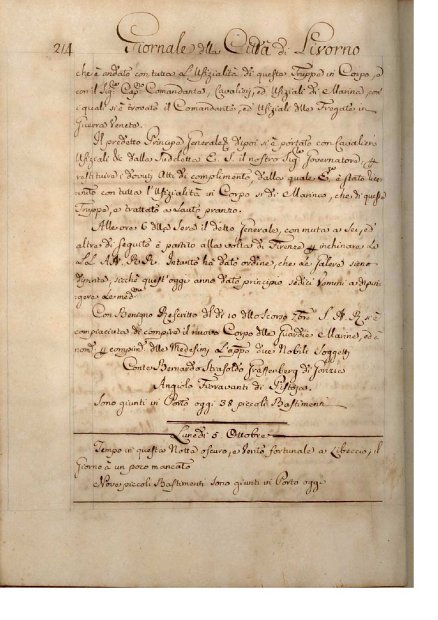 214 Giornale della Città di Livorno
che è andato con tutta l'Ufizialità di questa Truppa in Corpo, e
con il Sig.r Cap.o Comandante, Cavalieri, ed Ufiziali di Marina, con
i quali si è trovato il Comandante, ed Ufiziali della Fregata in
Guerra Veneta.
Il predetto Principe Generale di poi si è portato con Cavalieri
Ufiziali da S. E. il nostro Sig.r Governatore,
restituire i dovuti Atti di complimento, dalla quale è stato
con tutta l'Ufizialità in Corpo sì di Marina, che di questa
Truppa, e trattato a lauto pranzo.
Alle ore 6 della Sera il detto Generale, con muta a Sei, ed
altre di seguito è partito alla volta di Firenze inchinare le
LL. A. R. R. Intanto ha dato ordine, che le Galere siano
sicchè quest'oggi anno dato principio sedici Uomini a
le med.e
Con Benigno Rescritto del dì 10 dello Scorso S. A. R. si è
compiaciuta di compire il nuovo Corpo delle Guardie Marine, ed à
nom.i delle Medesime due Nobili Soggetti
Conte Bernardo Strasoldo Graffenberg di Gorizia
Angiolo Fioravanti di Pistoja.
Sono giunti in Porto oggi 38 piccoli Bastimenti
Lunedì 5 Ottobre
Tempo in questa Notte oscuro, e Vento fortunale a Libeccio, il
Giorno à un poco mancato
Nove piccoli Bastimenti sono giunti in Porto oggi